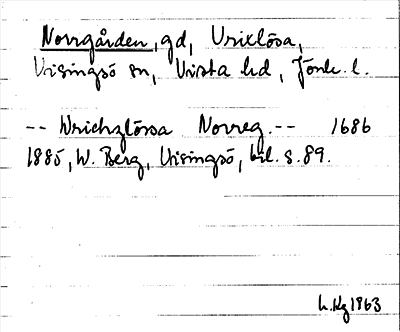 Norrgården, gd, Urixlösa,
Visingsö sn, Vista hd, Jönk. l.
-- Wrichzlössa Norreg. -- 1686
1885, W. Berg, Visingsö, bil. s. 89.
1963